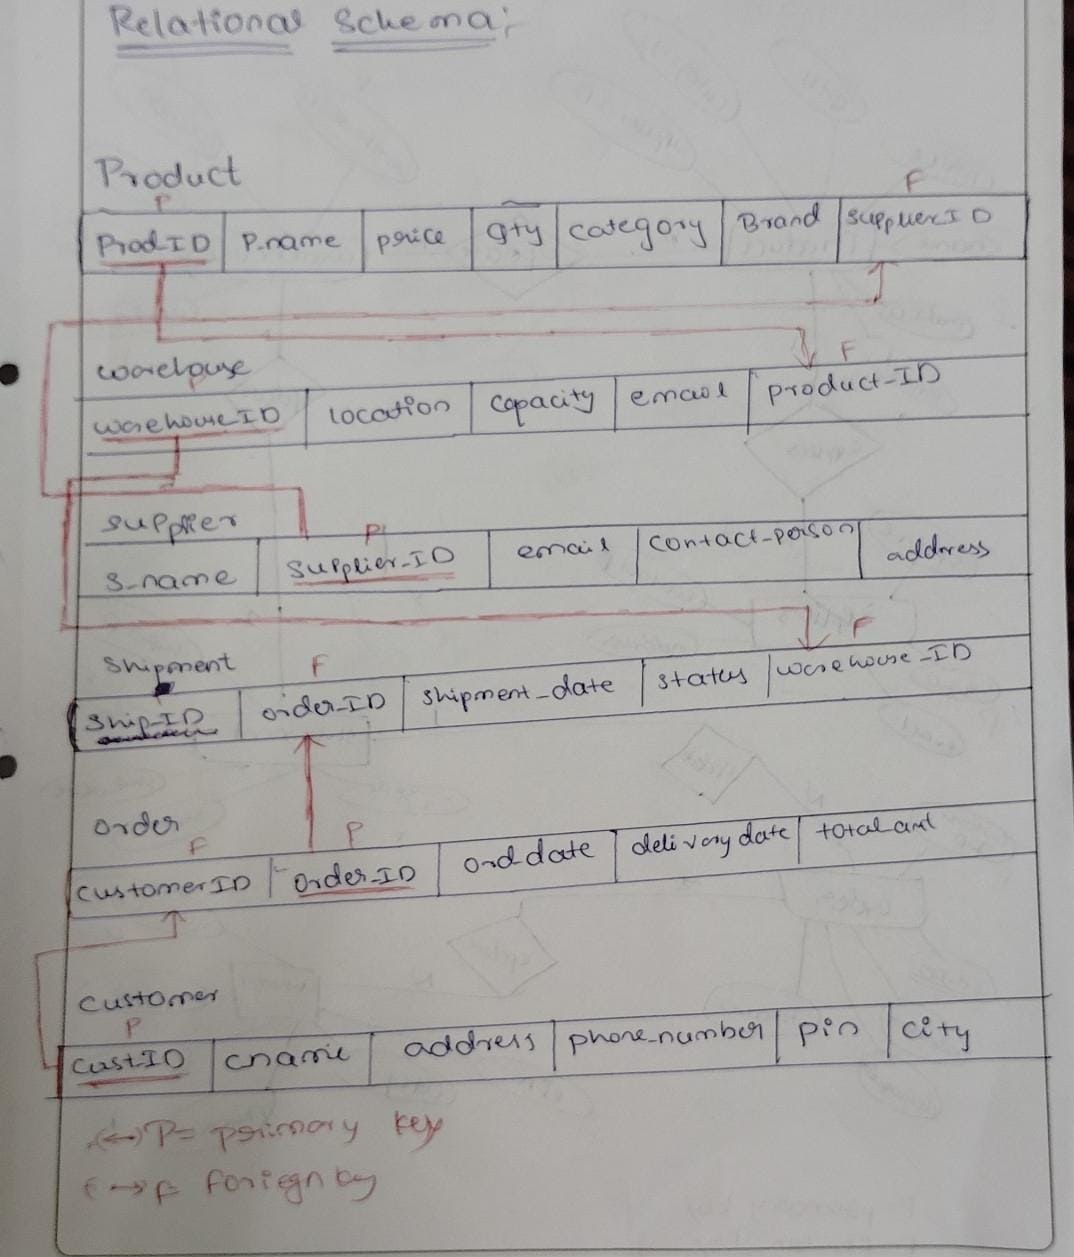 Relational Schema:
Product
P F
Prod_ID P.name price Qty category Brand supplierID
F
warehouse
P
warehouse_ID location capacity email product_ID
supplier
P
s_name supplier_ID email contact_person address
F
shipment F
Ship_ID order_ID shipment_date status warehouse_ID
order
F P
customerID order_ID ord date delivery date total amt
customer
P
Cust_ID cname address phone_number pin city
P= primary key
F foriegn ky